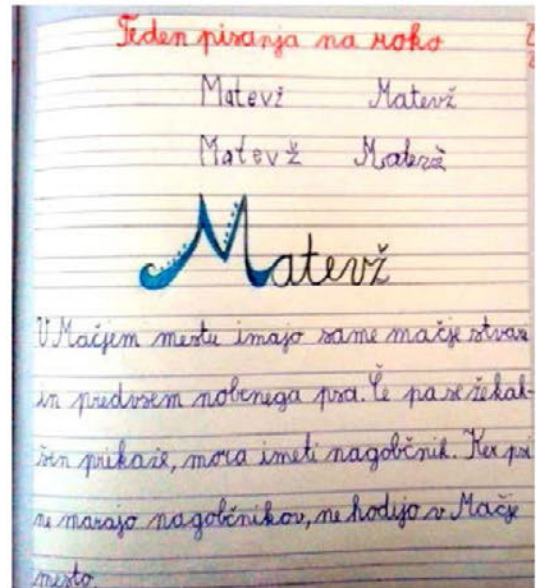 Teden pisanja na roko
Matevž Matevž
Matevž Matevž
Matevž
V Mačjem mestu imajo same mačje stvari
in predvsem nobenega psa. Če pa se že kak-
šen prikaže, mora imeti nagobčnik. Ker psi
ne marajo nagobčnikov, ne hodijo v Mačje
mesto.